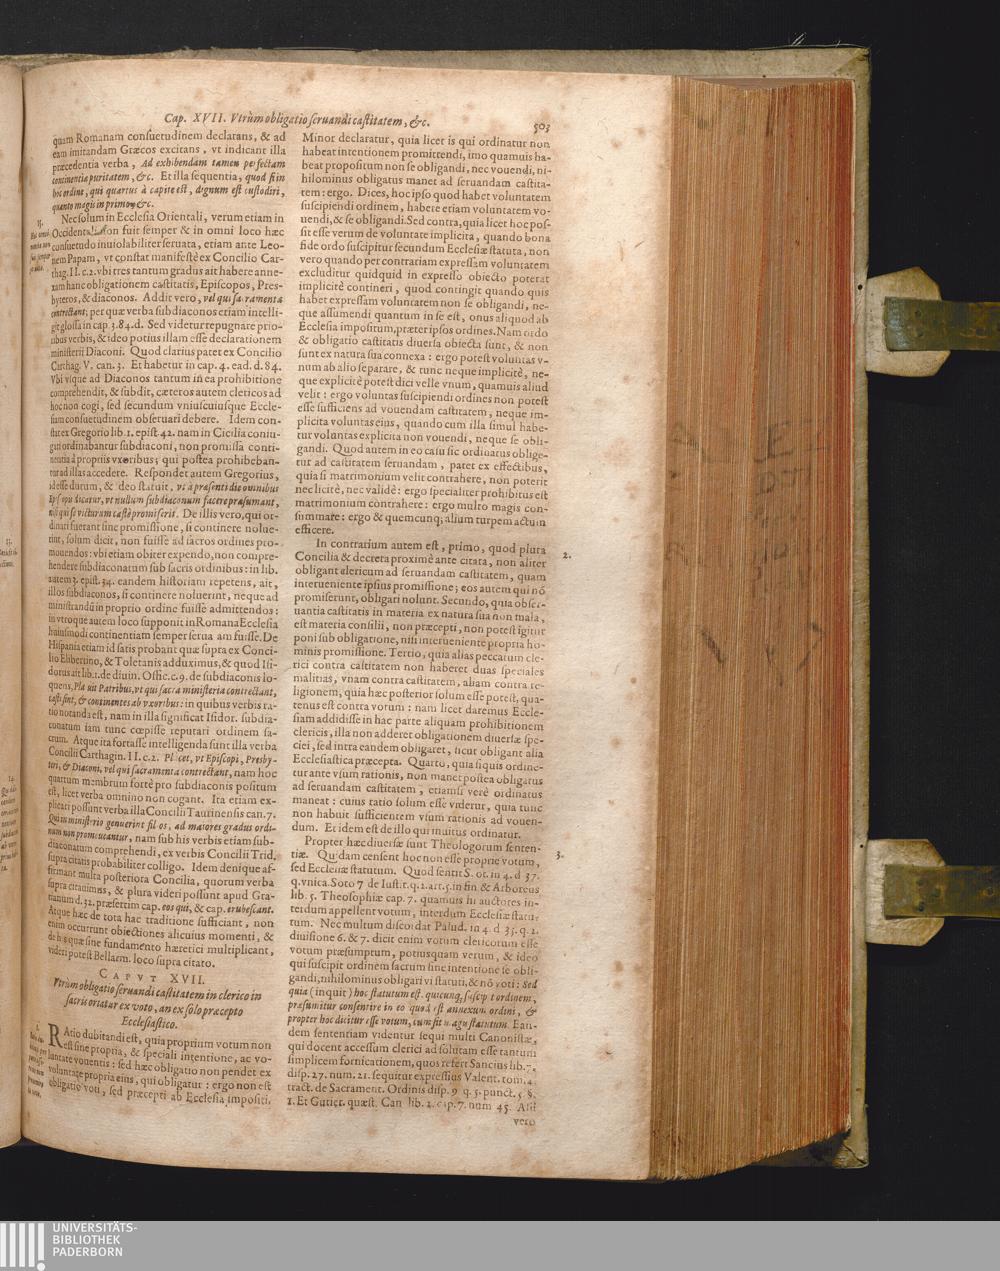 Cap. XVII. Vtrùm obligatio seruandi castitatem, &c.
503
quam Romanam consuetudinem declarans, & ad
eam imitandam Græcos excitans, vt indicant illa
præcedentia verba, Ad exhibendam tamen perfectam
continentiæ puritatem, &c. Et illa sequentia, quod si in
hoc ordine, qui quartus à capite est, dignum est custodiri,
quanto magis in primo, &c.
Nec solum in Ecclesia Orientali, verum etiam in
Occidentali non fuit semper & in omni loco hæc
consuetudo inuiolabiliter seruata, etiam ante Leo-
nem Papam, vt constat manifestè ex Concilio Car-
thag. II. c. 2. vbi tres tantum gradus ait habere anne-
xam hanc obligationem castitatis, Episcopos, Pres-
byteros, & diaconos. Addit vero, vel qui sacramenta
contrectant; per quæ verba subdiaconos etiam intelli-
git glossa in cap. 3. 84. d. Sed videtur repugnare prio-
ribus verbis, & ideo potius illam esse declarationem
ministerii Diaconi. Quod clarius patet ex Concilio
Carthag. V. can. 3. Et habetur in cap. 4. ead. d. 84.
Vbi vsque ad Diaconos tantum in ea prohibitione
comprehendit, & subdit, cæteros autem clericos ad
hoc non cogi, sed secundum vniuscuiusque Eccle-
siam consuetudinem obseruari debere. Idem con-
stat ex Gregorio lib. 1. epist. 42. nam in Cicilia coniu-
gati ordinabantur subdiaconi, non promissa conti-
nentia à propriis vxoribus; qui postea prohibeban-
tur ad illas accedere. Respondet autem Gregorius,
id esse durum, & deo statuit, vt à præsenti die omnibus
Episcopis dicatur, vt nullum subdiaconum facere præsumant,
nisi qui se victurum castè promiserit. De illis vero, qui or-
dinati fuerant sine promissione, si continere nolue-
rint, solum dicit, non fuisse ad sacros ordines pro-
mouendos: vbi etiam obiter expendo, non compre-
hendere subdiaconatum sub sacris ordinibus: in lib.
autem 3. epist. 34. eandem historiam repetens, ait,
illos subdiaconos, si continere noluerint, neque ad
ministrandū in proprio ordine fuisse admittendos:
in vtroque autem loco supponit in Romana Ecclesia
huiusmodi continentiam semper seruatam fuisse. De
Hispania etiam id satis probant quæ supra ex Conci-
lio Elibertino, & Toletanis adduximus, & quod Isi-
dorus ait lib. 1. de diuin. Offic. c. 9. de subdiaconis lo-
quens, Placuit Patribus, vt qui sacra ministeria contrectant,
casti sint, & continentes ab vxoribus: in quibus verbis ra-
tio notanda est, nam in illa significat Isidor. subdia-
conatum iam tunc cœpisse reputari ordinem sa-
crum. Atque ita fortasse intelligenda sunt illa verba
Concilii Carthagin. II. c. 2. Placet, vt Episcopi, Presby-
teri, & Diaconi, vel qui sacramenta contrectant, nam hoc
quartum membrum fortè pro subdiaconis positum
est, licet verba omnino non cogant. Ita etiam ex-
plicari possunt verba illa Concilii Taurinensis can. 7.
Qui in ministerio genuerint filios, ad maiores gradus ordi-
num non promoueantur, nam sub his verbis etiam sub-
diaconatum comprehendi, ex verbis Concilii Trid.
supra citatis probabiliter colligo. Idem denique af-
firmant multa posteriora Concilia, quorum verba
supra citauimus, & plura videri possunt apud Gra-
tianum d. 32. præsertim cap. eos qui, & cap. erubescant.
Atque hæc de tota hac traditione sufficiant, non
enim occurrunt obiectiones alicuius momenti, &
de his quæ sine fundamento hæretici multiplicant,
videri potest Bellarm. loco supra citato.
CAPVT XVII.
Vtrùm obligatio seruandi castitatem in clerico in
sacris oriatur ex voto, an ex solo præcepto
Ecclesiastico.
1.
RAtio dubitandi est, quia proprium votum non
est sine propria, & speciali intentione, ac vo-
luntate vouentis: sed hæc obligatio non pendet ex
voluntate propria eius, qui obligatur: ergo non est
obligatio voti, sed præcepti ab Ecclesia impositi.
Minor declaratur, quia licet is qui ordinatur non
habeat intentionem promittendi, imo quamuis ha-
beat propositum non se obligandi, nec vouendi, ni-
hilominus obligatus manet ad seruandam castita-
tem: ergo. Dices, hoc ipso quod habet voluntatem
suscipiendi ordinem, habere etiam voluntatem vo-
uendi, & se obligandi. Sed contra, quia licet hoc pos-
sit esse verum de voluntate implicita, quando bona
fide ordo suscipitur secundum Ecclesiæ statuta, non
vero quando per contrariam expressam voluntatem
excluditur quidquid in expresso obiecto poterat
implicitè contineri, quod contingit quando quis
habet expressam voluntatem non se obligandi, ne-
que assumendi quantum in se est, onus aliquod ab
Ecclesia impositum, præter ipsos ordines. Nam ordo
& obligatio castitatis diuersa obiecta sunt, & non
sunt ex natura sua connexa: ergo potest voluntas v-
num ab alio separare, & tunc neque implicitè, ne-
que explicitè potest dici velle vnum, quamuis aliud
velit: ergo voluntas suscipiendi ordines non potest
esse sufficiens ad vouendam castitatem, neque im-
plicita voluntas eius, quando cum illa simul habe-
tur voluntas explicita non vouendi, neque se obli-
gandi. Quod autem in eo casu sic ordinatus oblige-
tur ad castitatem seruandam, patet ex effectibus,
quia si matrimonium velit contrahere, non poterit
nec licitè, nec validè: ergo specialiter prohibitus est
matrimonium contrahere: ergo multo magis con-
summare: ergo & quemcunq; alium turpem actum
efficere.
2.
In contrarium autem est, primo, quod plura
Concilia & decreta proximè ante citata, non aliter
obligant clericum ad seruandam castitatem, quam
interueniente ipsius promissione; eos autem qui nō
promiserunt, obligari nolunt. Secundo, quia obser-
uantia castitatis in materia ex natura sua non mala,
est materia consilii, non præcepti, non potest igitur
poni sub obligatione, nisi interueniente propria ho-
minis promissione. Tertio, quia alias peccatum cle-
rici contra castitatem non haberet duas speciales
malitias, vnam contra castitatem, aliam contra re-
ligionem, quia hæc posterior solum esse potest, qua-
tenus est contra votum: nam licet daremus Eccle-
siam addidisse in hac parte aliquam prohibitionem
clericis, illa non adderet obligationem diuersæ spe-
ciei, sed intra eandem obligaret, sicut obligant alia
Ecclesiastica præcepta. Quarto, quia si quis ordine-
tur ante vsum rationis, non manet postea obligatus
ad seruandam castitatem, etiamsi verè ordinatus
maneat: cuius ratio solum esse videtur, quia tunc
non habuit sufficientem vsum rationis ad vouen-
dum. Et idem est de illo qui inuitus ordinatur.
3.
Propter hæc diuersæ sunt Theologorum senten-
tiæ. Quidam censent hoc non esse proprie votum,
sed Ecclesiæ statutum. Quod sentit Scot. in 4. d. 37.
q. vnica. Soto 7 de Iust. t. q. 2. art. 5. in fin & Arboreus
lib. 5. Theosophiæ cap. 7. quamuis hi auctores in-
terdum appellent votum, interdum Ecclesiæ statu-
tum. Nec multum discordat Palud. in 4. d 35. q. 2.
diuisione 6. & 7. dicit enim votum clericorum esse
votum præsumptum, potiusquam verum, & ideo
qui suscipit ordinem sacrum sine intentione se obli-
gandi, nihilominus obligari vi statuti, & nō voti: Sed
quia (inquit) hoc statutum est, quicunq; suscipit ordinem,
præsumitur consentire in eo quod est annexum ordini, &
propter hoc dicitur esse votum, cum sit magis statutum. Ean-
dem sententiam videntur sequi multi Canonistæ,
qui docent accessum clerici ad solutam esse tantum
simplicem fornicationem, quos refert Sancius lib. 7.
disp. 27. num. 21. sequitur expressius Valent. tom. 4.
tract. de Sacrament. Ordinis disp. 9 q. 5. punct. 5 §.
1. Et Gutier. quæst. Can. lib. 2. cap. 7. num 45. Alii
vero
UNIVERSITÄTS-
BIBLIOTHEK
PADERBORN